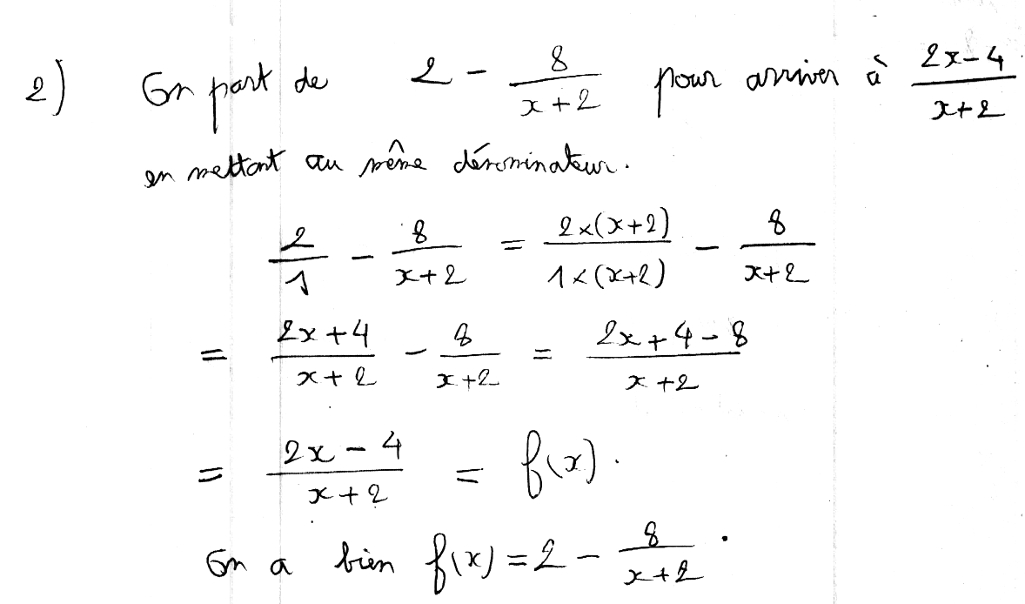 2) On part de 2 - 8/(x+2) pour arriver à (2x-4)/(x+2)
en mettant au même dénominateur.
2/1 - 8/(x+2) = (2×(x+2))/(1×(x+2)) - 8/(x+2)
= (2x+4)/(x+2) - 8/(x+2) = (2x+4-8)/(x+2)
= (2x-4)/(x+2) = f(x).
On a bien f(x) = 2 - 8/(x+2).